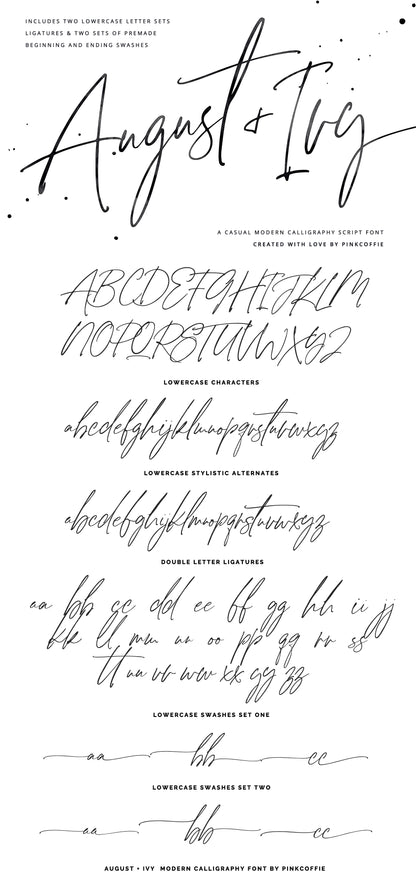 INCLUDES TWO LOWERCASE LETTER SETS
LIGATURES & TWO SETS OF PREMADE
BEGINNING AND ENDING SWASHES
August + Ivy
A CASUAL MODERN CALLIGRAPHY SCRIPT FONT
CREATED WITH LOVE BY PINKCOFFIE
ABCDEFGHIJKLM
NOPQRSTUVWXYZ
LOWERCASE CHARACTERS
abcdefghijklmnopqrstuvwxyz
LOWERCASE STYLISTIC ALTERNATES
abcdefghijklmnopqrstuvwxyz
DOUBLE LETTER LIGATURES
aa bb cc dd ee ff gg hh ii jj
kk ll mm nn oo pp qq rr ss
tt uu vv ww xx yy zz
LOWERCASE SWASHES SET ONE
aa bb cc
LOWERCASE SWASHES SET TWO
aa bb cc
AUGUST + IVY MODERN CALLIGRAPHY FONT BY PINKCOFFIE